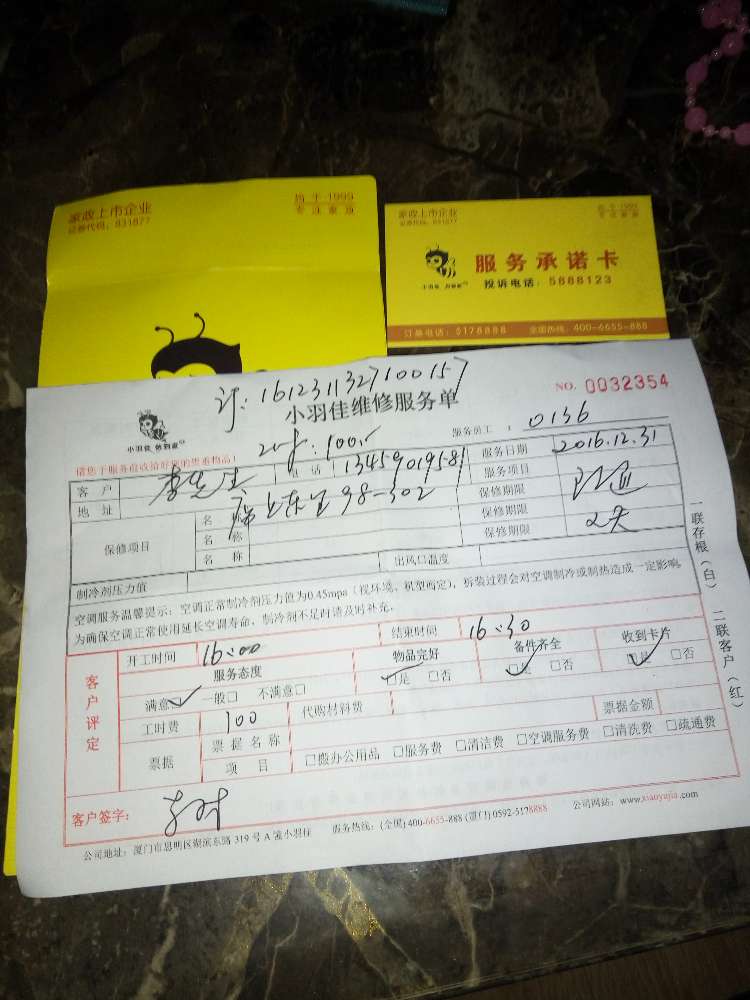 家政上市企业
证券代码：831877
始于·1999
专注家政
家政上市企业
证券代码：831877
始于·1999
专注家政
服务承诺卡
投诉电话：5888123
小羽佳 物到家
订单电话：5178888 全国热线：400-6655-888
订：1612311327100157
小羽佳维修服务单
NO. 0032354
小羽佳 物到家
100
服务员工：0136
请您于服务前收拾好您的贵重物品！
客户 李先生 电话 13459019581 服务日期 2016.12.31
地址 98-302 服务项目
保修项目 名称 保修期限
名称 保修期限 2天
名称 保修期限
制冷剂压力值 出风口温度
空调服务温馨提示：空调正常制冷剂压力值为0.45mpa（视环境、机型而定），拆装过程会对空调制冷或制热造成一定影响
为确保空调正常使用延长空调寿命，制冷剂不足时请及时补充。
客户评定
开工时间 16:00 结束时间 16:30
服务态度 物品完好 备件齐全 收到卡片
满意✓ 一般□ 不满意□ ☑是 □否 ☑是 □否 ☑是 □否
工时费 100 代购材料费 票据金额
票据 票据名称
项目 □搬办公用品 □服务费 □清洁费 □空调服务费 □清洗费 □疏通费
客户签字：
公司地址：厦门市思明区湖滨东路 319 号 A 幢小羽佳 服务热线：(全国) 400-6655-888 (厦门) 0592-5178888 公司网站：www.xiaoyujia.com
一联存根（白） 二联客户（红）